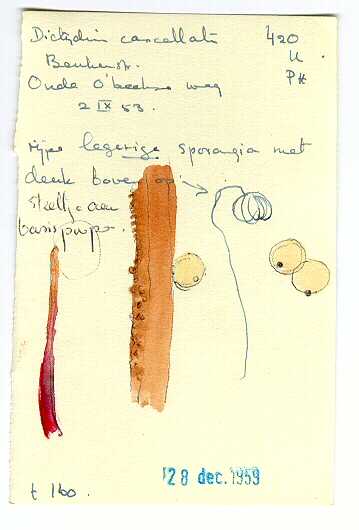 Dictydium cancellati 420
Beukenstr. U
Oude O'beekse weg P*
2 IX 53.
rijpe legerige sporangia met
deuk boven op
steeltje aan
basis purper.
t 160.
28 dec. 1959